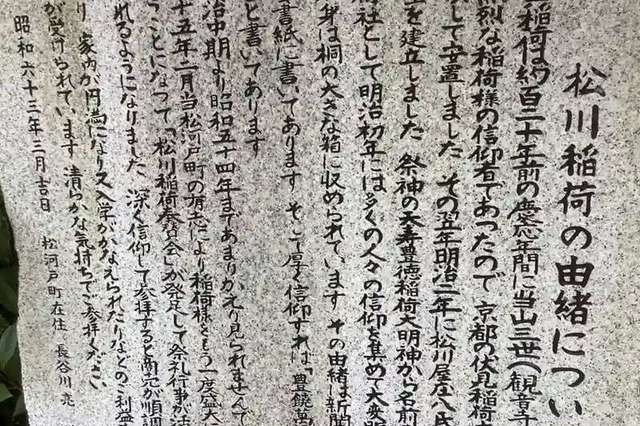 松川稲荷の由緒につい
稲荷は約百二十年前の慶応年間に当山三世(観音寺
烈な稲荷様の信仰者であったので京都の伏見稲荷
して安置しました その翌年明治二年に松川屋庄八氏
を建立しました 祭神の末寿豊徳稲荷大明神から名前
社として明治初年には多くの人々の信仰を集めて大変賑
身は桐の大きな箱に収められています その由緒は新聞
書紙に書いてあります そして厚く信仰すれば「豊饒萬
と書いてあります
治中期より昭和五十四年まであまりかえり見られませんで
十五年二月当松河戸町の有志により稲荷様をもう一度盛大
ことになって「松川稲荷奉賛会」が発足して祭礼行事が活
れるようになりました 深く信仰して参拝すると商売が順調
り 家内が円満になり又入学がかなえられたりなどのご利益
が受けられています 清らかな気持ちでご参拝ください
昭和六十三年三月吉日 松河戸町在住 長谷川 亮